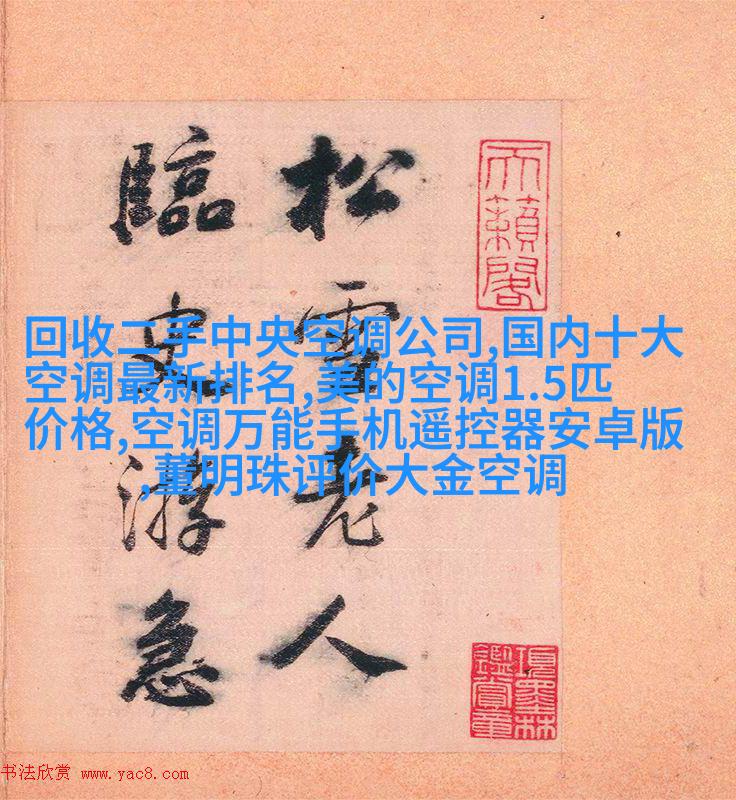 松雪老人
臨史游急
天籟閣
項墨林
鑑賞章
回收二手中央空调公司,国内十大
空调最新排名,美的空调1.5匹
价格,空调万能手机遥控器安卓版
,董明珠评价大金空调
书法欣赏 www.yac8.com